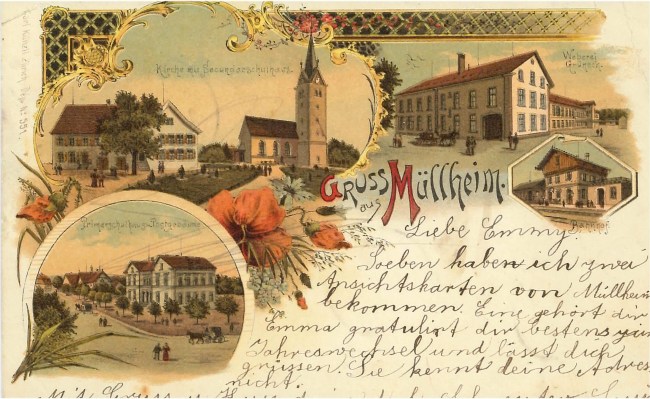 Kirche mit Secundarschulhaus.
Weberei Grüneck.
GRUSS aus Müllheim.
Bahnhof.
Primarschulhaus u. Postgebäude
Liebe Emmy
Soeben haben ich zwei
Ansichtskarten von Müllheim
bekommen. Eine gehört dir
Emma gratulirt dir bestens zum
Jahreswechsel und lässt dich
grüssen. Sie kennt deine Adres
nicht.
Mit Gruss u.